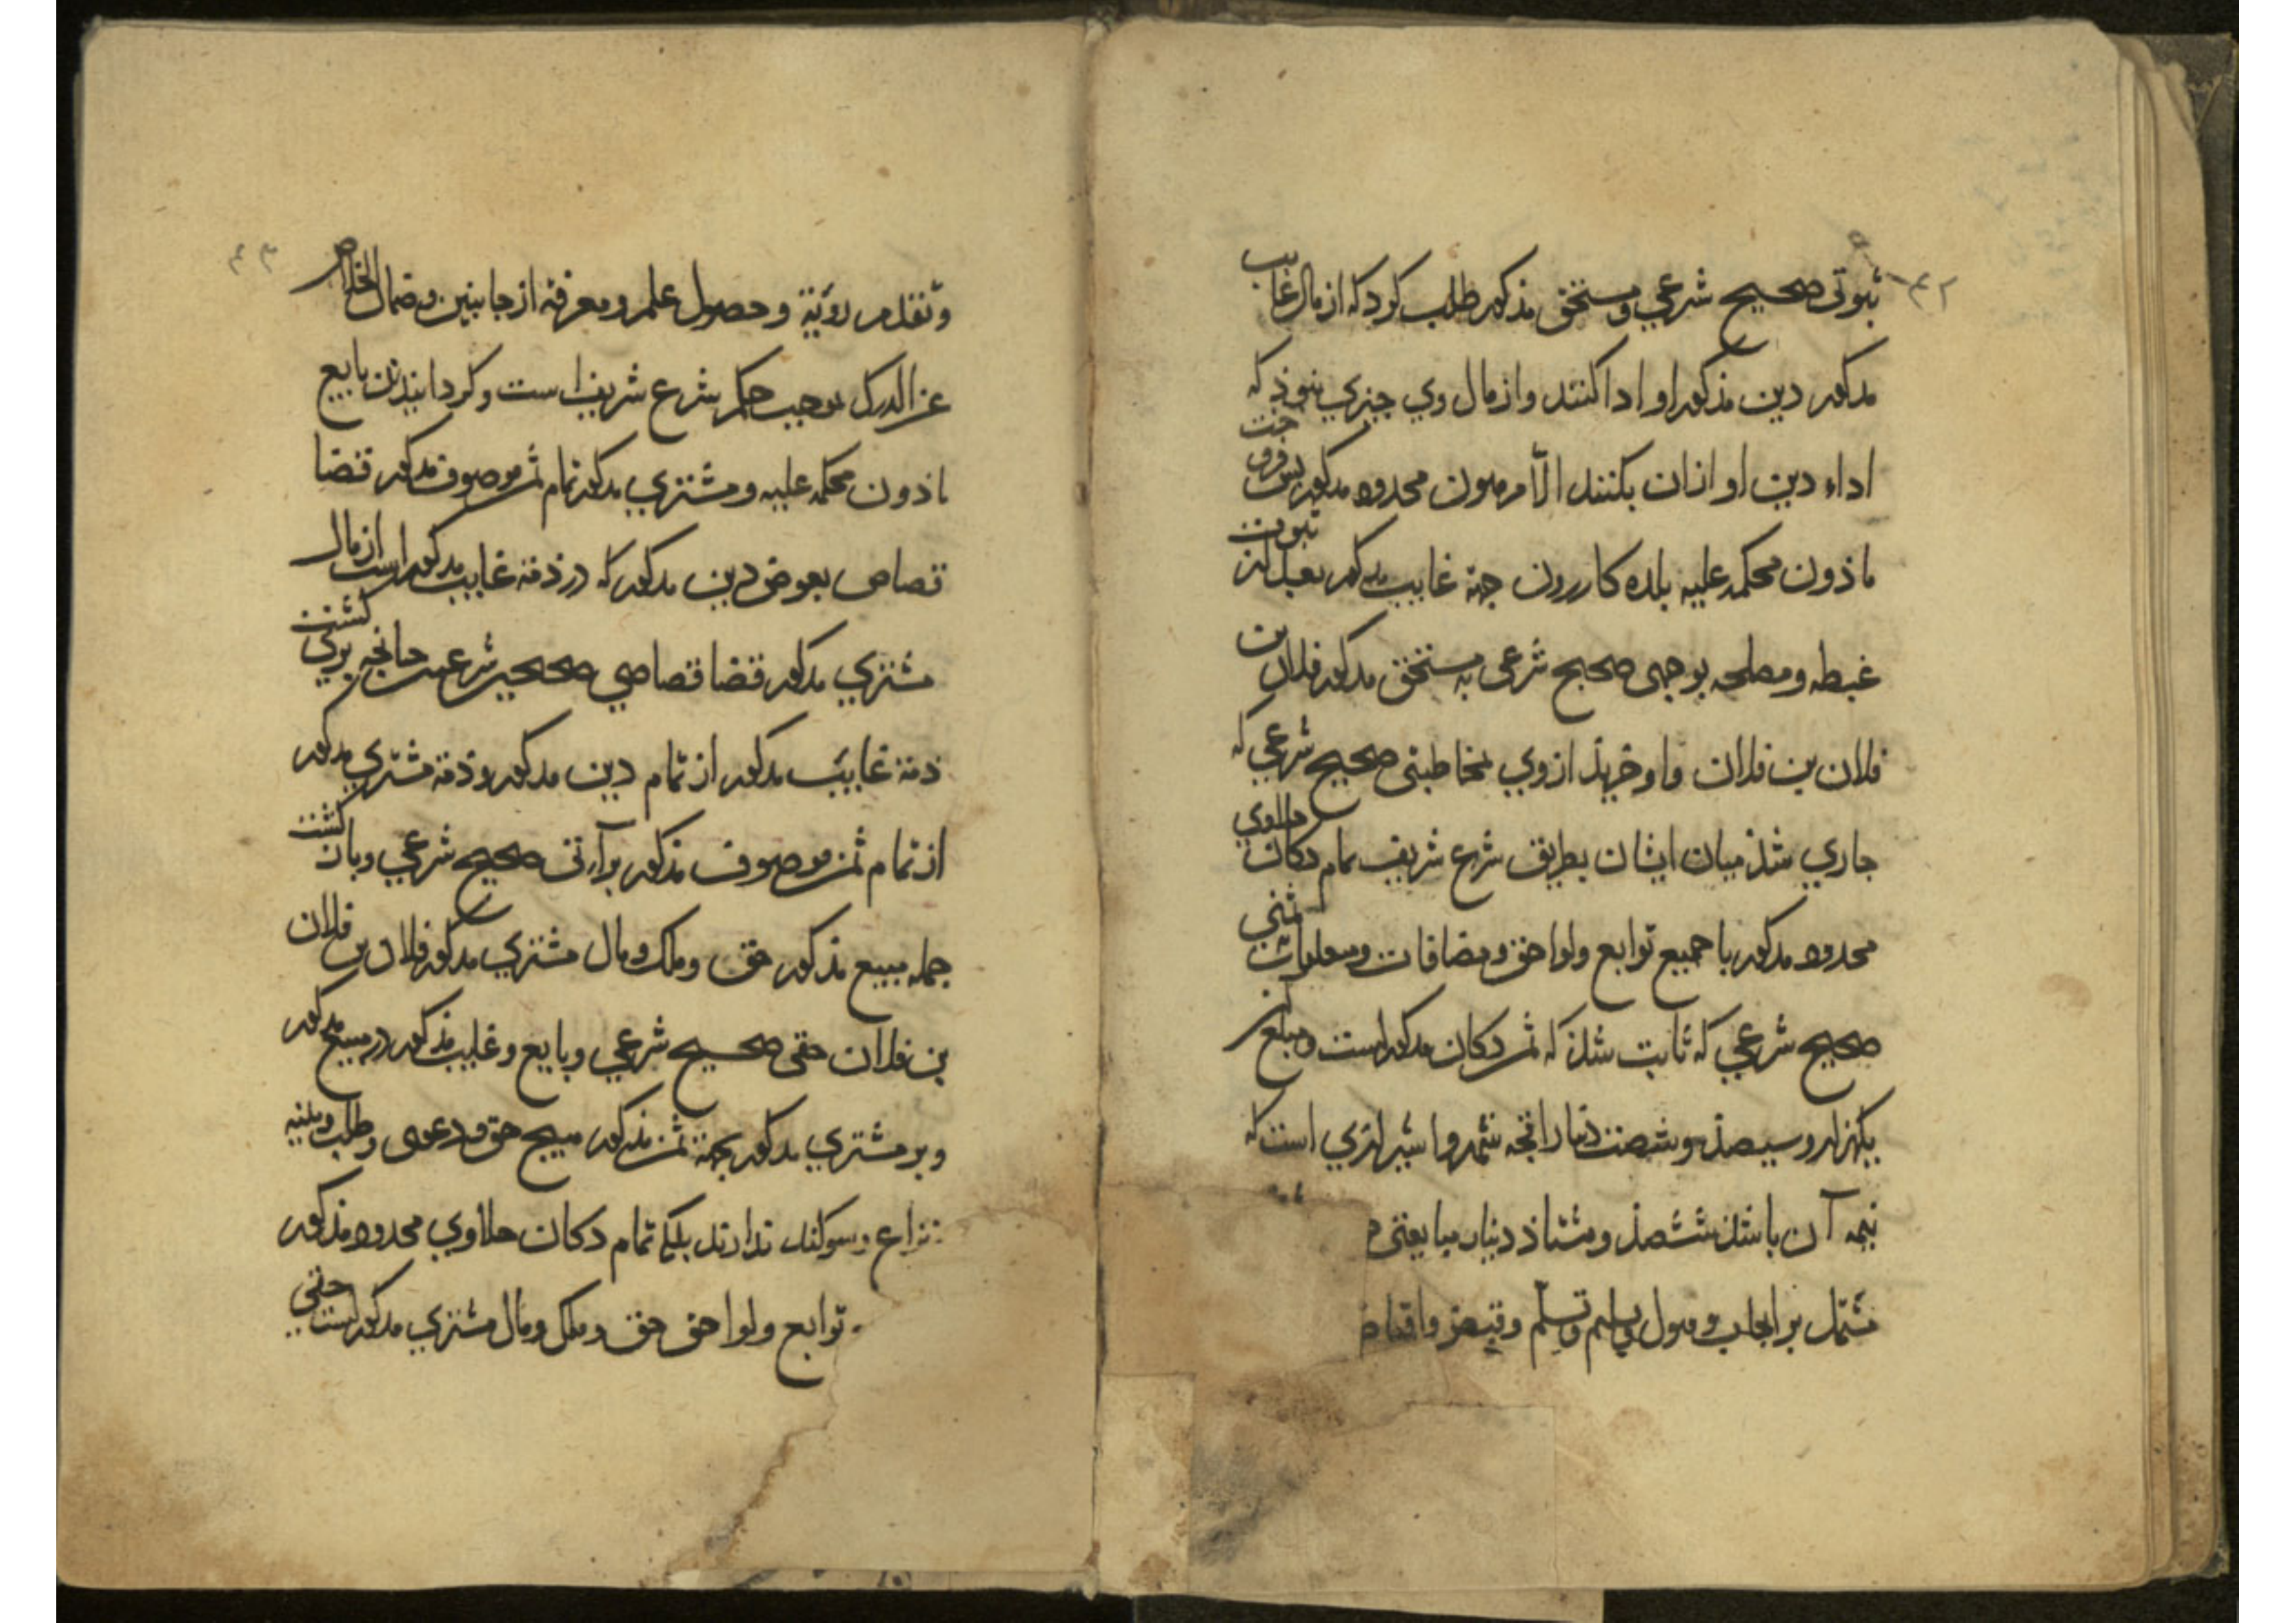 ۴۲
ثبوتی صحیح شرعی و مستحق مذکور طلب کرد که از مال غایب
مذکور دین مذکور او ادا کنند و از مال وی چیزی نبوذ که
اداء دین او ازان بکنند الا مرهون محدود مذکور پس فروخت
ماذون محکمه علیه بلده کازرون جهة غایب مذکور بعد از ثبوت
غبطه و مصلحه بوجهی صحیح شرعی به مستحق مذکور فلان بن
فلان بن فلان و او خرید از وی بمخاطبتی صحیح شرعی که
جاری شذ میان ایشان بطریق شرع شریف تمام دکان حلاوی
محدود مذکور با جمیع توابع و لواحق و مضافات و منسوبات بثمنی
صحیح شرعی که ثابت شذ که ثمن دکان مذکور است و مبلغ آن
یکهزار و سیصذ و شصت دینار رایجه شمرده شیرازی است که
نیمه آن باشذ ششصذ و هشتاذ دینار مبایعتی
مشتمل بر ایجاب و قبول و تسلیم و تسلم و قبض و اقباض
۴۳
و تقدم رؤیة و حصول علم و معرفة از جانبین و ضمان الخلاص
عن الدرک بموجب حکم شرع شریف است و کردانیدن بایع
ماذون محکمه علیه و مشتری مذکور تمام ثمن موصوف مذکور قضا
قصاص بعوض دین مذکور که در ذمة غایب مذکور است از مال
مشتری مذکور قضا قصاصی صحیح شرعی چنانچه بری کشت
ذمة غایب مذکور از تمام دین مذکور و ذمة مشتری مذکور
از تمام ثمن موصوف مذکور برآءتی صحیح شرعی و بان کشت
جمله مبیع مذکور حق و ملک و مال مشتری مذکور فلان بن فلان
بن فلان حقی صحیح شرعی و بایع و غایب مذکور در مبیع مذکور
و بر مشتری مذکور بجهة ثمن مذکور هیچ حق و دعوی و طلب و بینه
نزاع و سوکند ندارند بلکی تمام دکان حلاوی محدود مذکور
توابع و لواحق حق و ملک و مال مشتری مذکور است حقی